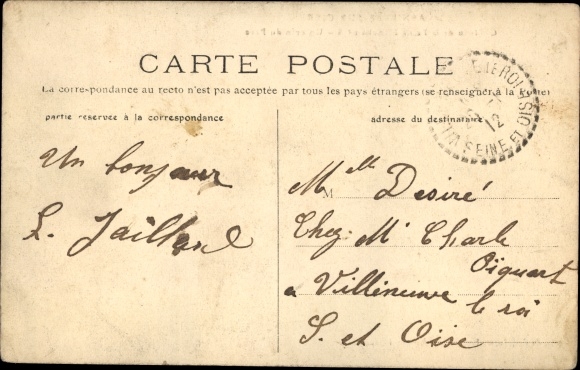 CARTE POSTALE
La correspondance au recto n'est pas acceptée par tous les pays étrangers (se renseigner à la Poste)
partie reservée à la correspondance
adresse du destinataire
12
SEINE ET OISE
Un bonjour
L. Jaillard
M Melle Desiré
Chez Mr Charle
Piquart
a Villeneuve le roi
S. et Oise